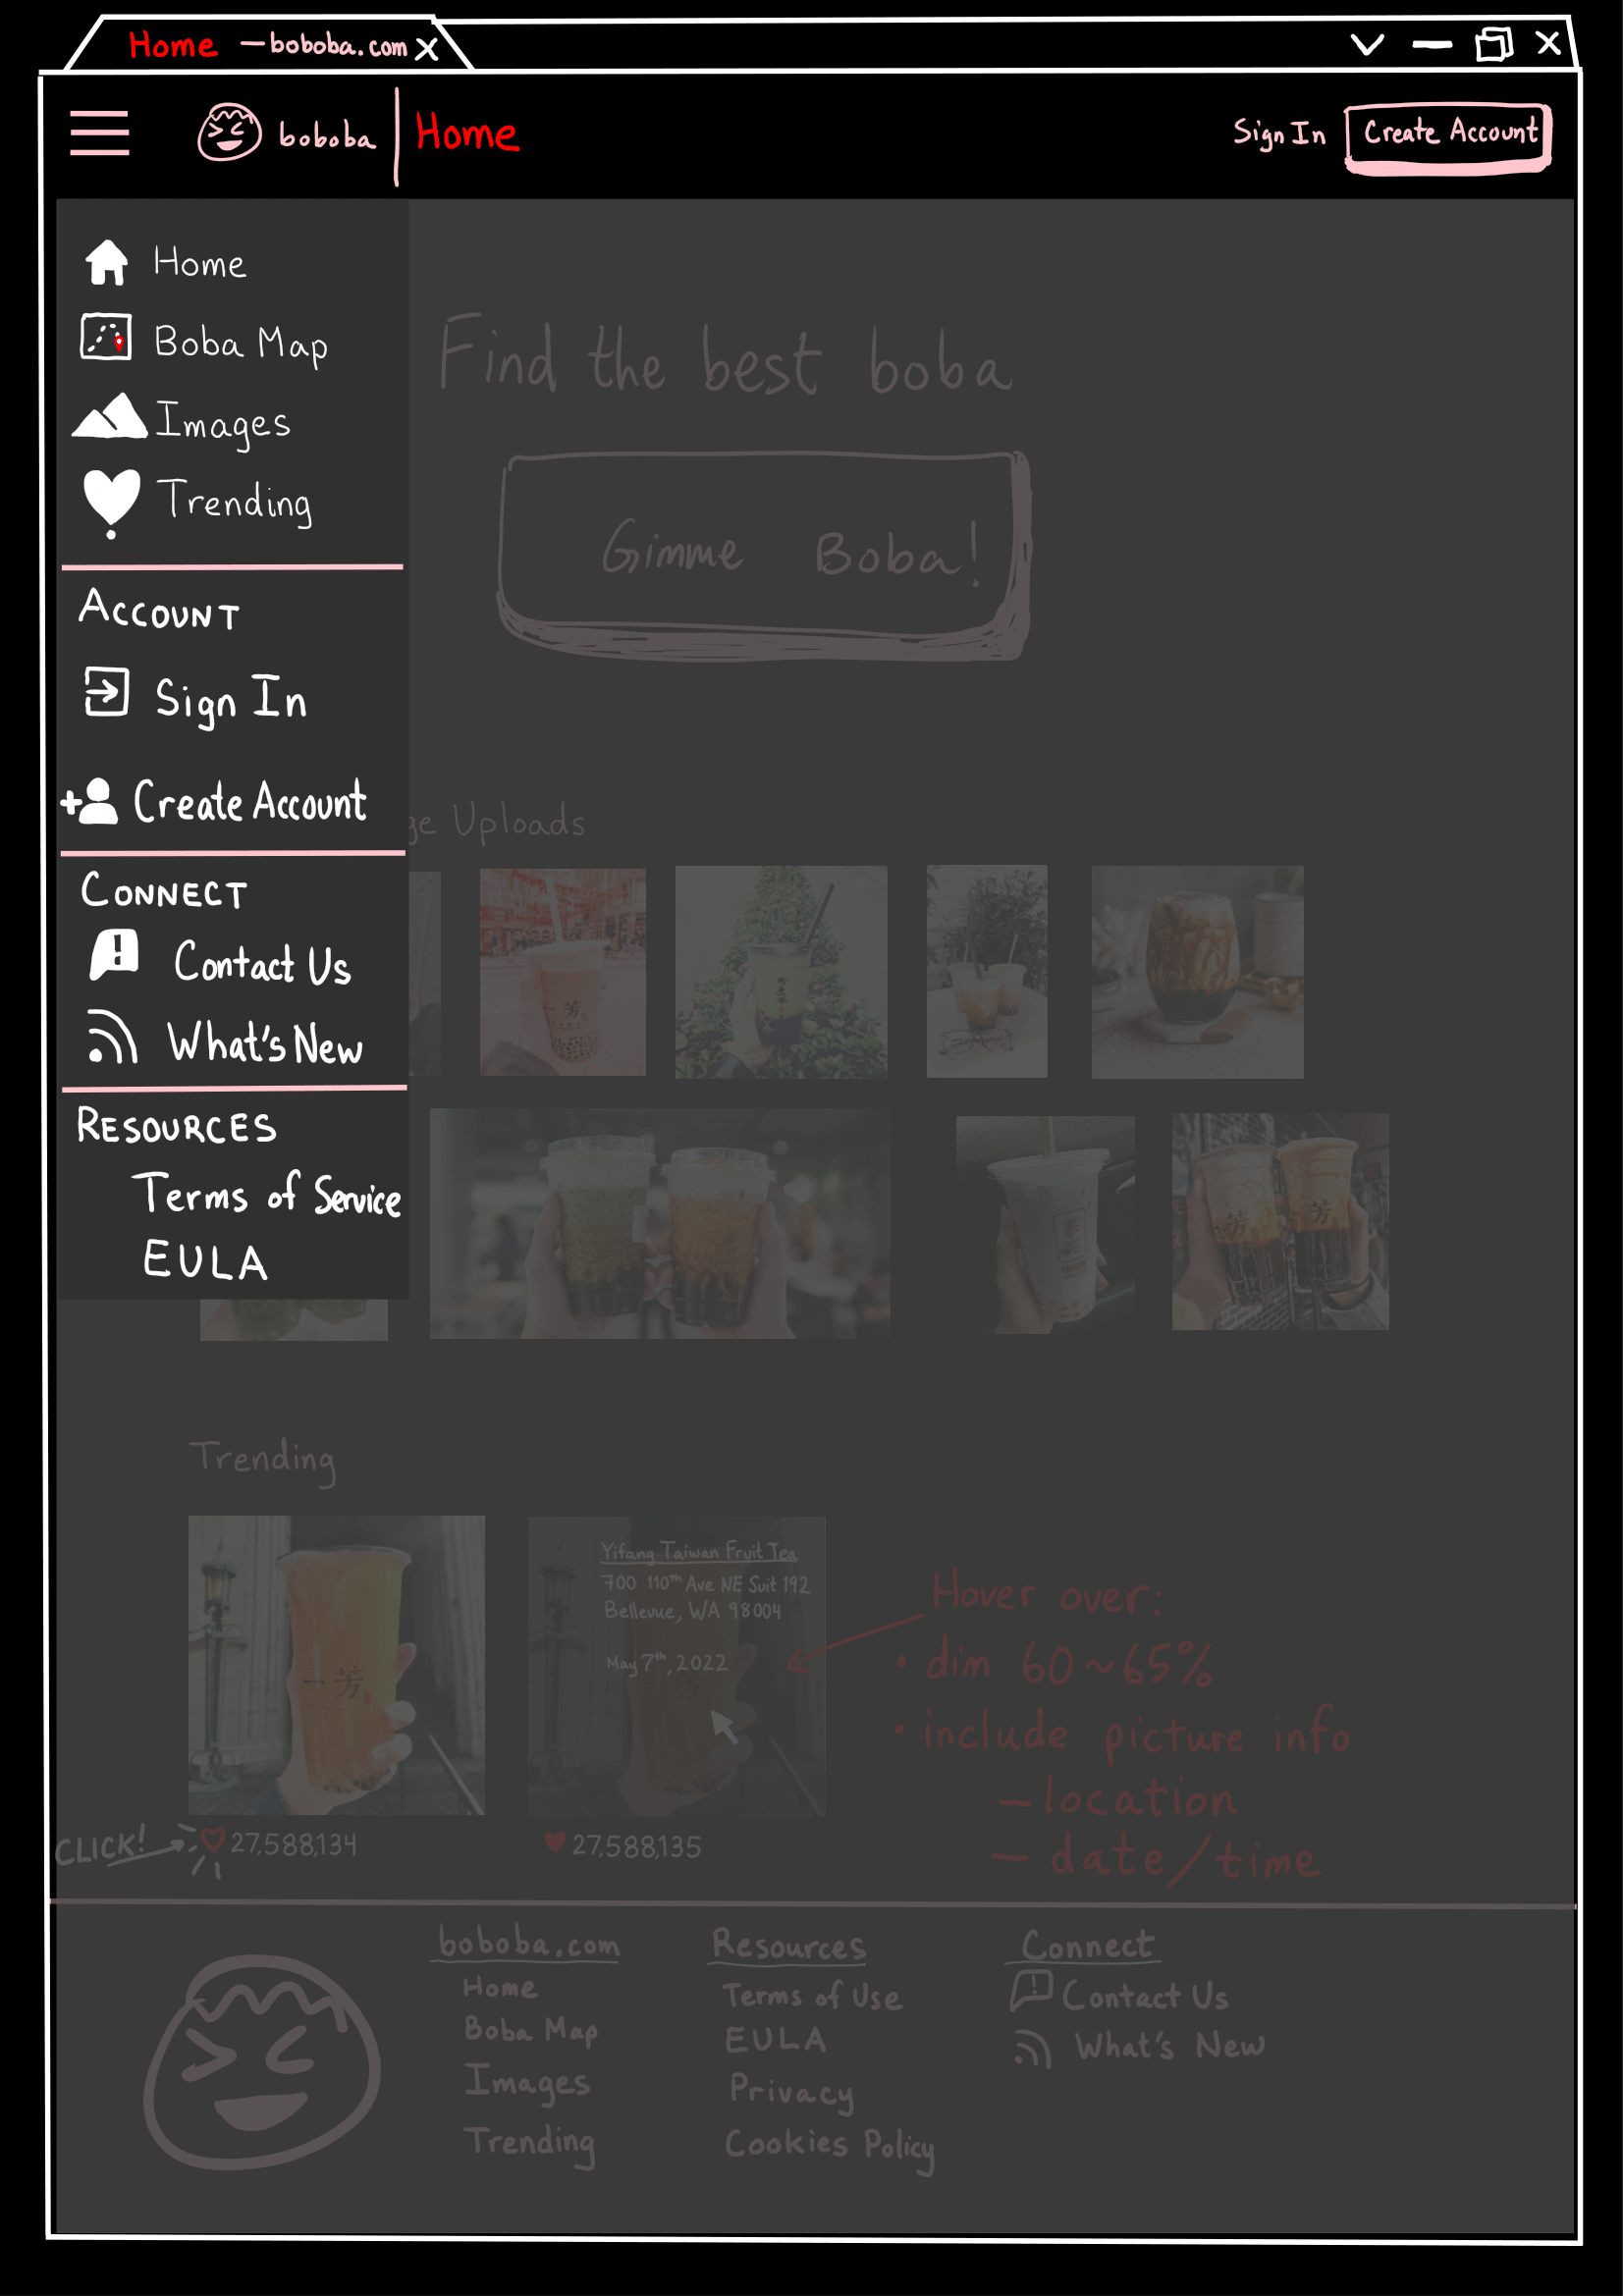 Home — boboba.com X
boboba | Home
Sign In
Create Account
Home
Boba Map
Images
Trending
ACCOUNT
Sign In
Create Account
CONNECT
Contact Us
What's New
RESOURCES
Terms of Service
EULA
Find the best boba
Gimme Boba!
ge Uploads
一芳
一芳
一芳
Trending
一芳
Yifang Taiwan Fruit Tea
700 110th Ave NE Suit 192
Bellevue, WA 98004
May 7th, 2022
Hover over:
• dim 60~65%
• include picture info
— location
— date/time
CLICK!
27,588,134
27,588,135
boboba.com
Home
Boba Map
Images
Trending
Resources
Terms of Use
EULA
Privacy
Cookies Policy
Connect
Contact Us
What's New